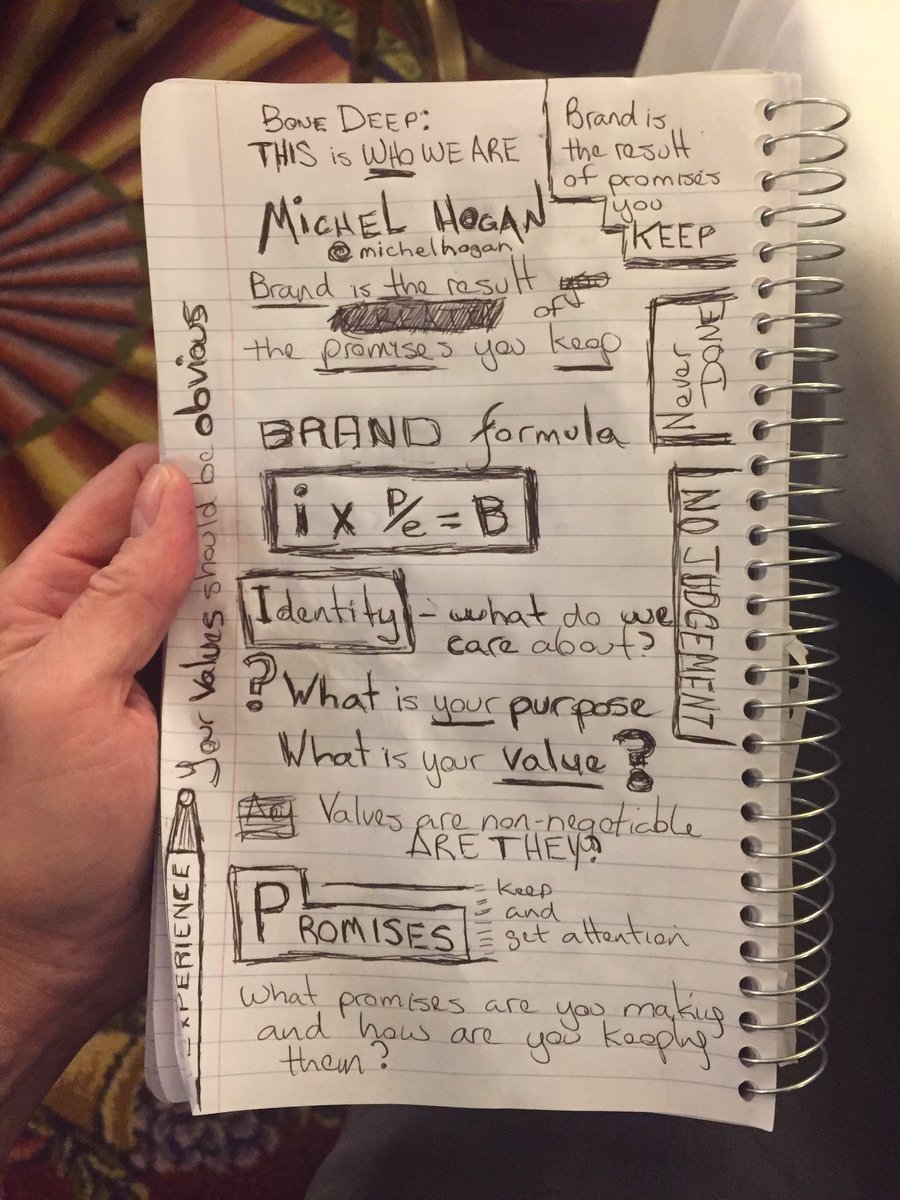 BONE DEEP:
THIS is WHO WE ARE
Brand is
the result
of promises
you
KEEP
MICHEL HOGAN
@michelhogan
Brand is the result
of
the promises you keep
Never
DONE
BRAND formula
i x P/e = B
NO JUDGEMENT
Identity - what do we
care about?
? What is your purpose
What is your value?
Values are non-negotiable
ARE THEY?
PROMISES
keep
and
get attention
What promises are you making
and how are you keeping
them?
your values should be obvious
EXPERIENCE